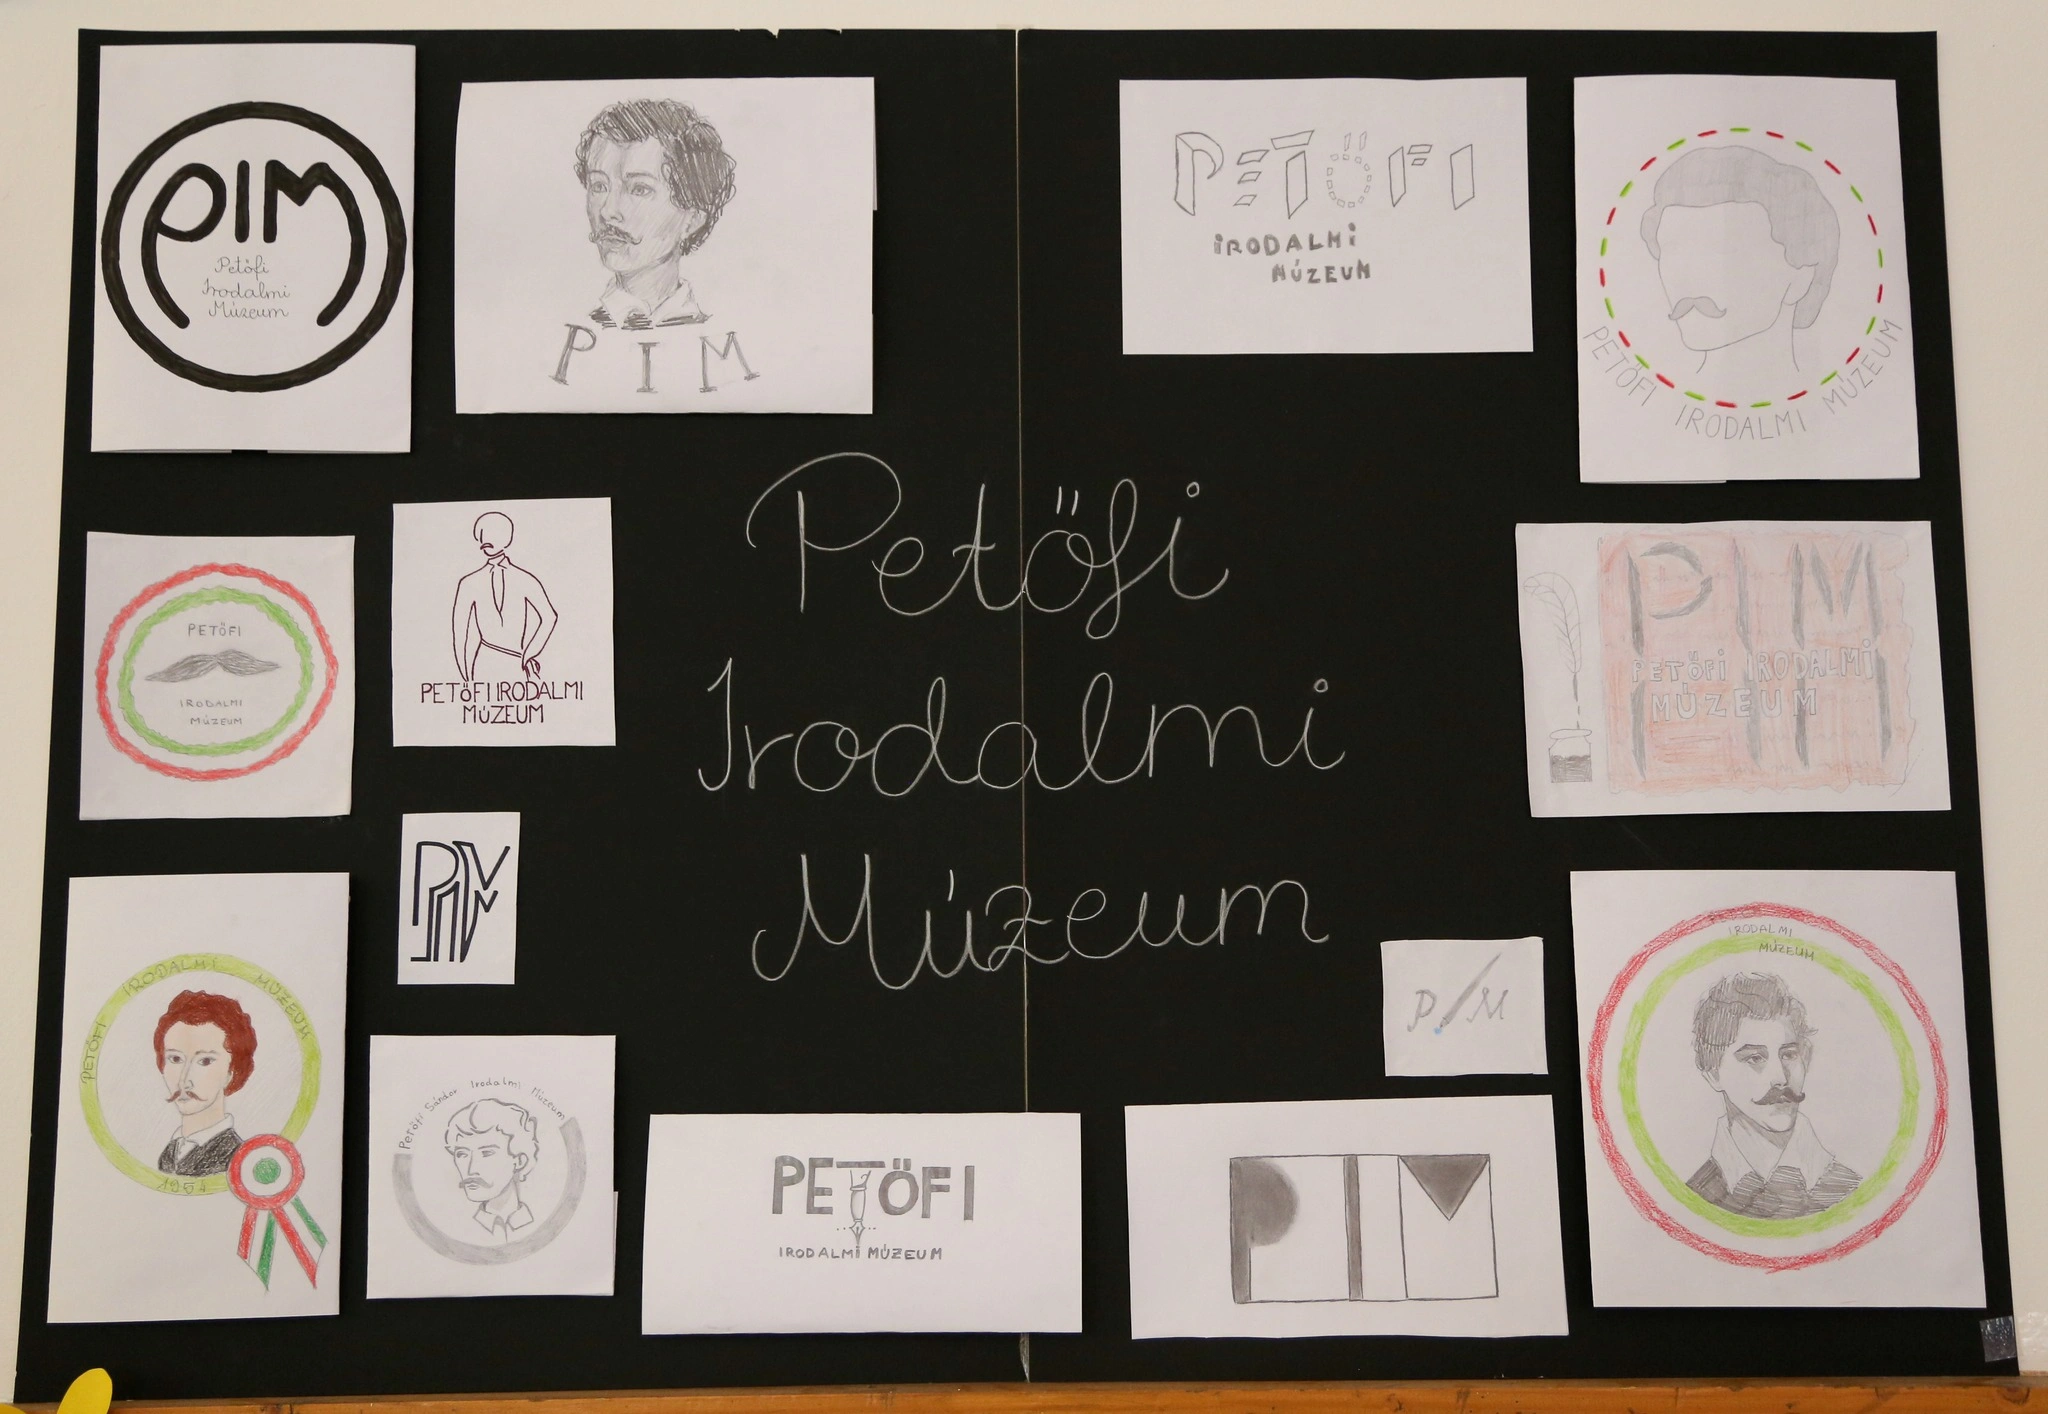 PIM
Petőfi
Irodalmi
Múzeum
P I M
PETŐFI
IRODALMI
MÚZEUM
PETŐFI IRODALMI MÚZEUM
PETŐFI
IRODALMI
MÚZEUM
PETŐFI IRODALMI
MÚZEUM
Petőfi
Irodalmi
Múzeum
PIM
PETŐFI IRODALMI
MÚZEUM
PIM
PETŐFI IRODALMI MÚZEUM
1954
Petőfi Sándor Irodalmi Múzeum
PETŐFI
IRODALMI MÚZEUM
P/M
PIM
IRODALMI
MÚZEUM